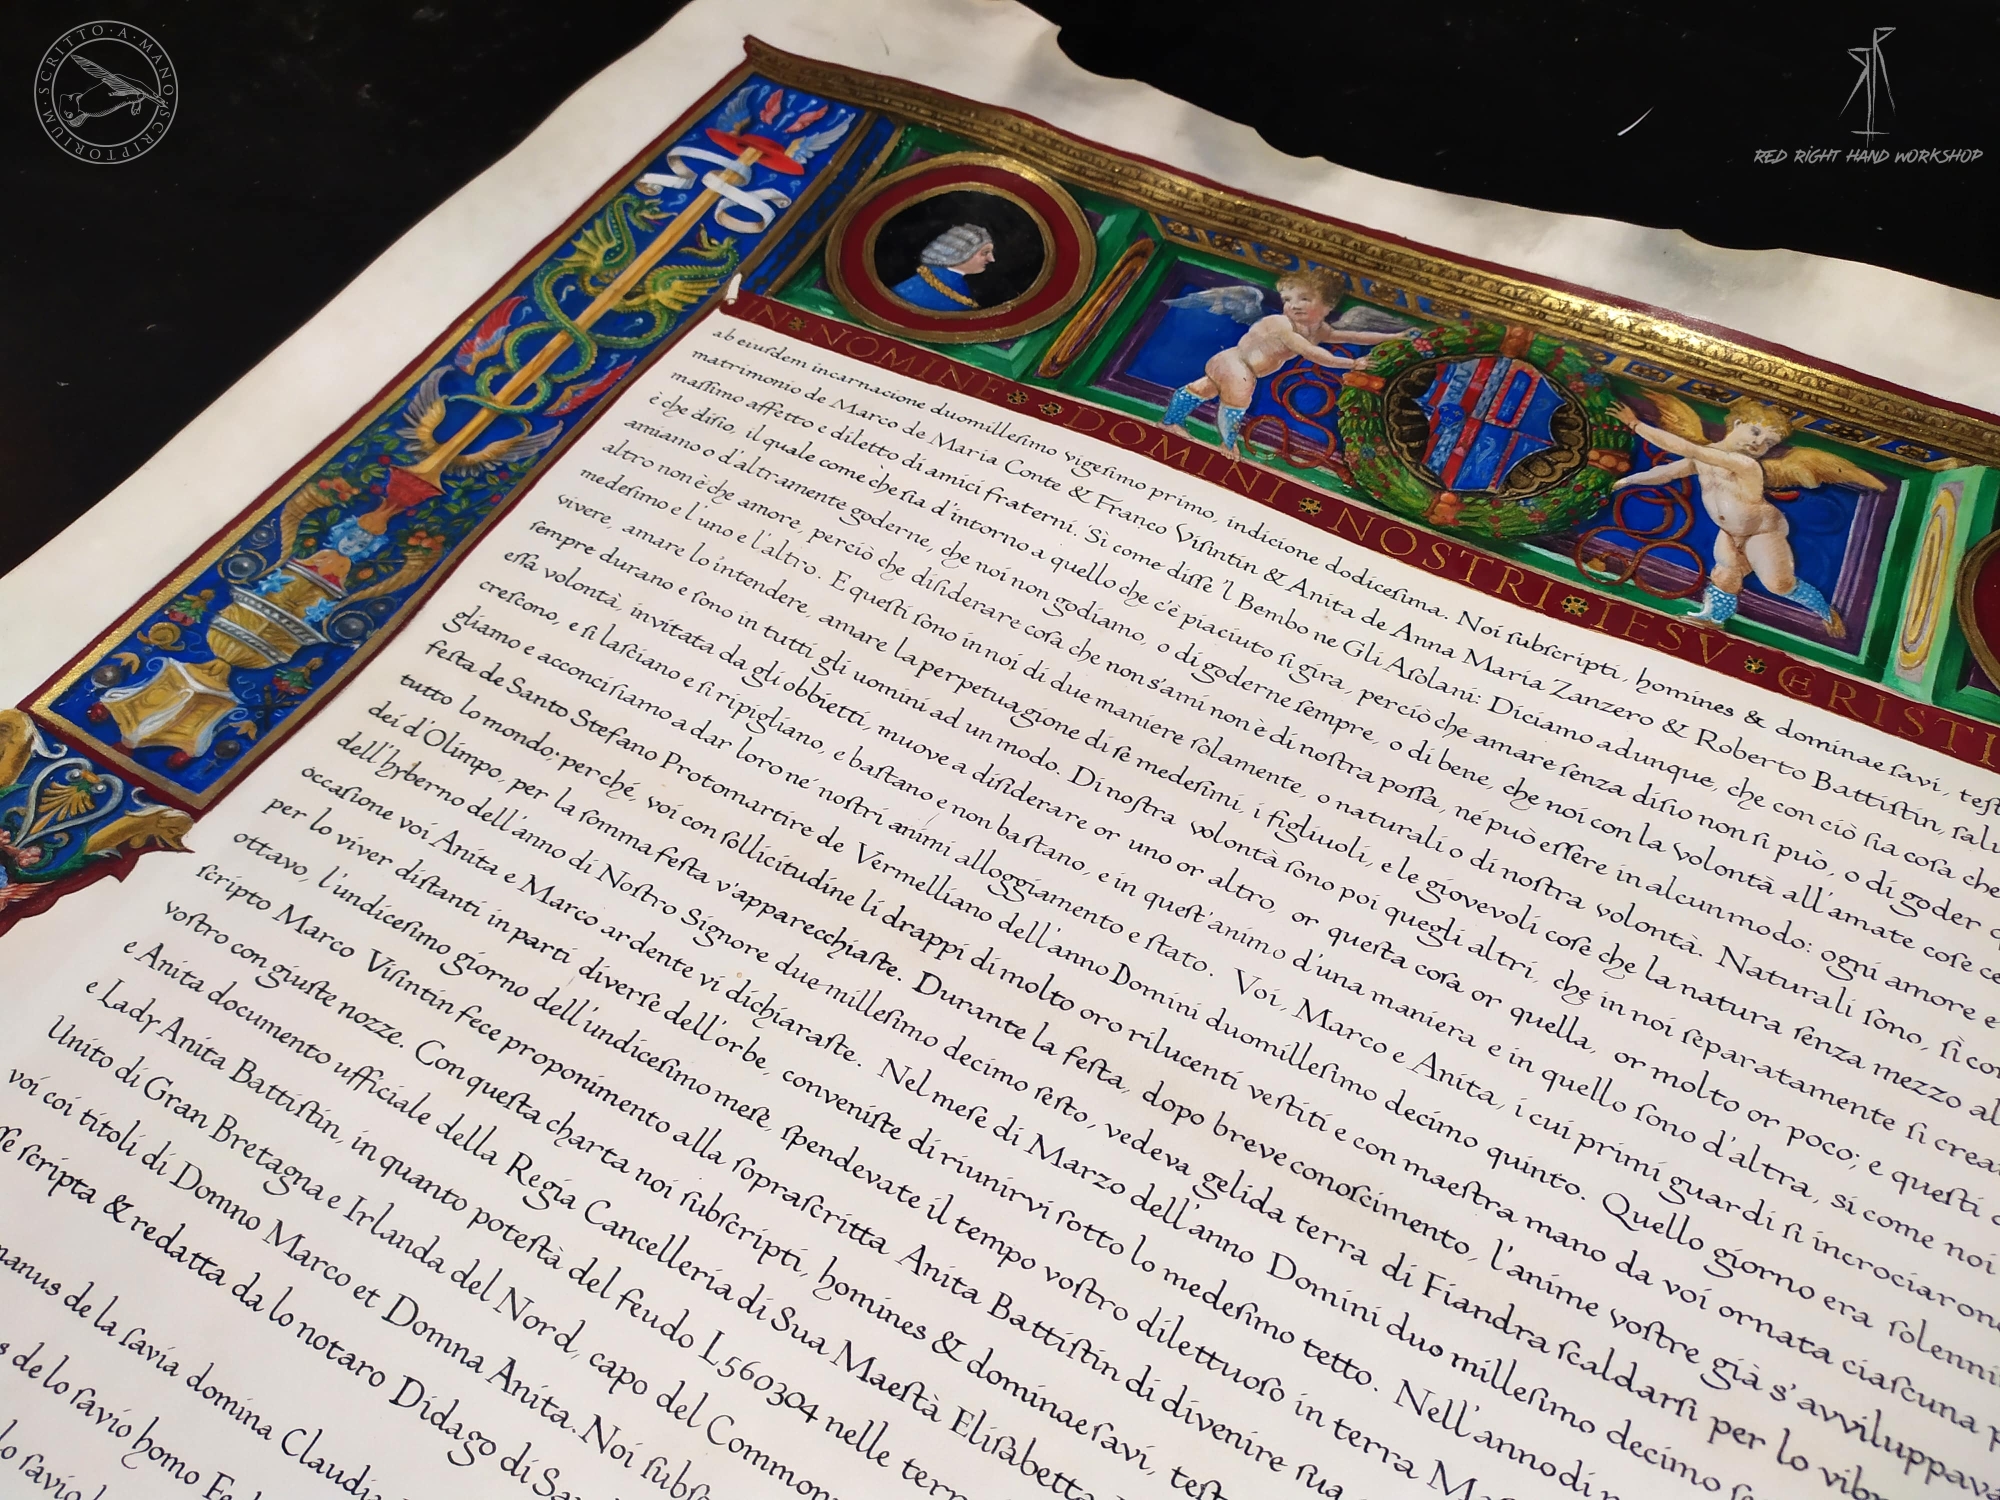 SCRITTO · A · MANO · SCRIPTORIUM
RED RIGHT HAND WORKSHOP
IN NOMINE DOMINI NOSTRI IESV CHRISTI
ab eiusdem incarnacione duomillesimo vigesimo primo, indicione dodicesima. Noi subscripti, homines & dominae savi,
matrimonio de Marco de Maria Conte & Franco Visintin & Anita de Anna Maria Zanzero & Roberto Battistin,
massimo affetto e diletto di amici fraterni. Sì come disse 'l Bembo ne Gli Asolani: Diciamo adunque, che con ciò sia cosa che
è che disio, il quale come che sia d'intorno a quello che c'è piaciuto si gira, perciò che amare senza disio non si può, o di goder
amiamo o d'altramente goderne, che noi non godiamo, o di goderne sempre, o di bene, che noi con la volontà all'amate cose
altro non è che amore, perciò che disiderare cosa che non s'ami non è di nostra possa, né può essere in alcun modo: ogni amore e
medesimo e l'uno e l'altro. E questi sono in noi di due maniere solamente, o naturali o di nostra volontà. Naturali sono, sì
vivere, amare lo intendere, amare la perpetuagione di se medesimi, i figliuoli, e le giovevoli cose che la natura senza mezzo
sempre durano e sono in tutti gli uomini ad un modo. Di nostra volontà sono poi quegli altri, che in noi separatamente si
essa volontà, invitata da gli obbietti, muove a disiderare or uno or altro, or questa cosa or quella, or molto or poco; e questi
crescono, e si lasciano e si ripigliano, e bastano e non bastano, e in quest'animo d'una maniera e in quello sono d'altra, sì come noi
gliamo e acconcisiamo a dar loro ne' nostri animi alloggiamento e stato. Voi, Marco e Anita, i cui primi guardi si incrociaron
festa de Santo Stefano Protomartire de Vermelliano dell'anno Domini duomillesimo decimo quinto. Quello giorno era solenni
tutto lo mondo; perché, voi con sollicitudine li drappi di molto oro rilucenti vestiti e con maestra mano da voi ornata ciascuna
dei d'Olimpo, per la somma festa v'apparecchiaste. Durante la festa, dopo breve conoscimento, l'anime vostre già s'avviluppava
dell'hyberno dell'anno di Nostro Signore due millesimo decimo sesto, vedeva gelida terra di Fiandra scaldarsi per lo
occasione voi Anita e Marco ardente vi dichiaraste. Nel mese di Marzo dell'anno Domini duo millesimo decimo
per lo viver distanti in parti diverse dell'orbe, conveniste di riunirvi sotto lo medesimo tetto. Nell'anno di
ottavo, l'undicesimo giorno dell'undicesimo mese, spendevate il tempo vostro dilettuoso in terra
scripto Marco Visintin fece proponimento alla soprascritta Anita Battistin di divenire sua
vostro con giuste nozze. Con questa charta noi subscripti, homines & dominae savi,
e Anita documento ufficiale della Regia Cancelleria di Sua Maestà Elisabetta
e Lady Anita Battistin, in quanto potestà del feudo L560304 nelle
Unito di Gran Bretagna e Irlanda del Nord, capo del Common
voi coi titoli di Domno Marco et Domna Anita. Noi
scripta & redatta da lo notaro Didago di
manus de la savia domina Claudia
de lo savio homo
lo savio